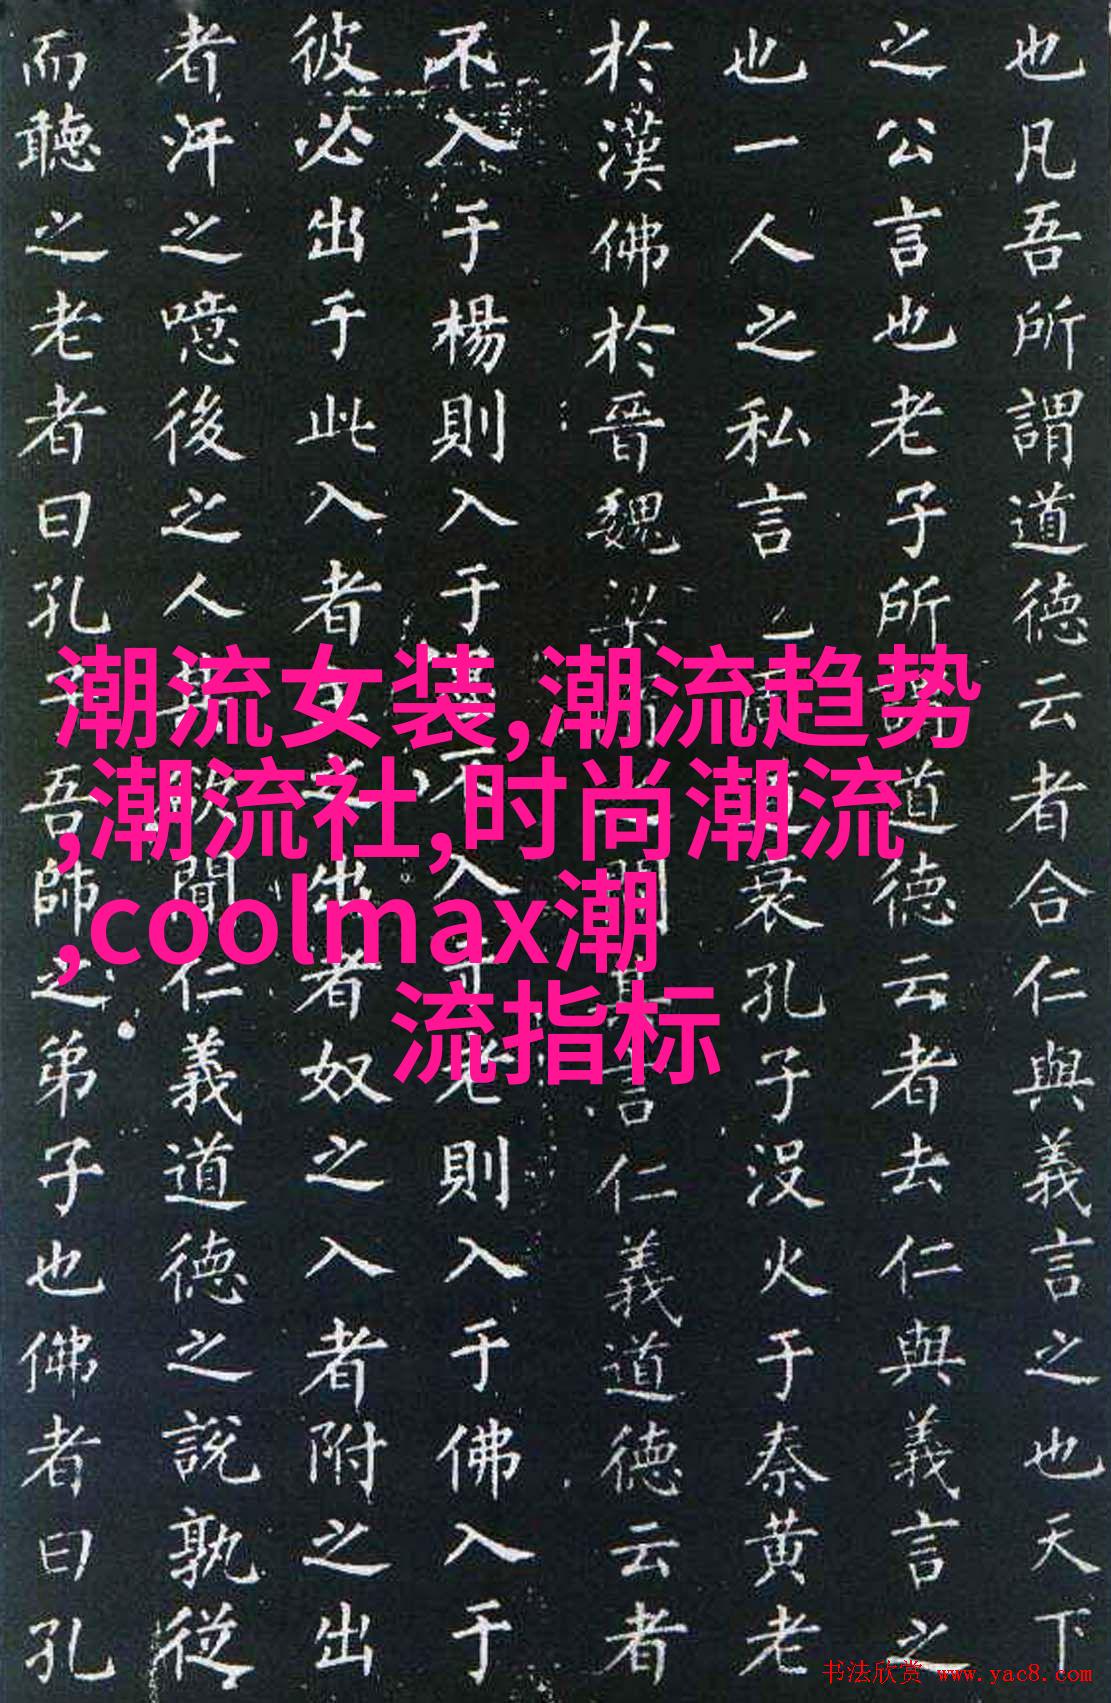 也凡吾所謂道德云者合仁與義言之也天下
之公言也老子所道德云者去仁與義言之
也一人之私言衰孔子没火于秦黄老
於漢佛於晉魏梁間言仁義道德云者
不入于楊則入于不入于老則入于佛入于
彼必出于此入者出者奴之入者附之出
者汙之噫後之人欲聞仁義道德之説孰從
而聽之老者曰孔子吾師之弟子也佛者曰孔
潮流女装,潮流趋势
,潮流社,时尚潮流
,coolmax潮
流指标
书法欣赏 www.yac8.com